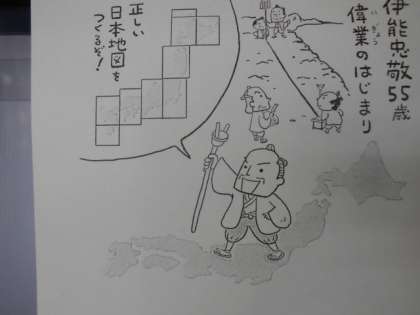 伊能忠敬55歳
偉業のはじまり
いぎょう
正しい
日本地図を
つくるぞ!